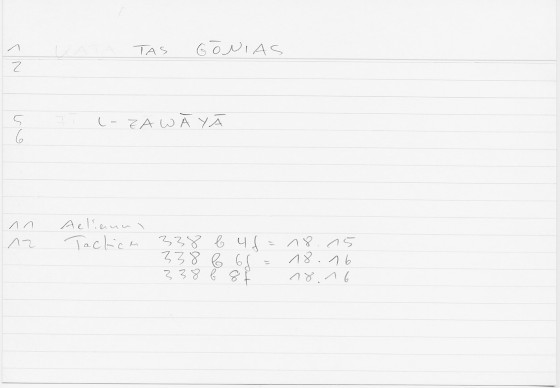 1 TAS GŌNIAS
2
5 L-ZAWĀYĀ
6
11 Aelianus
12 Tactica 338 b 4f = 18.15
338 b 6f = 18.16
338 b 8f 18.16